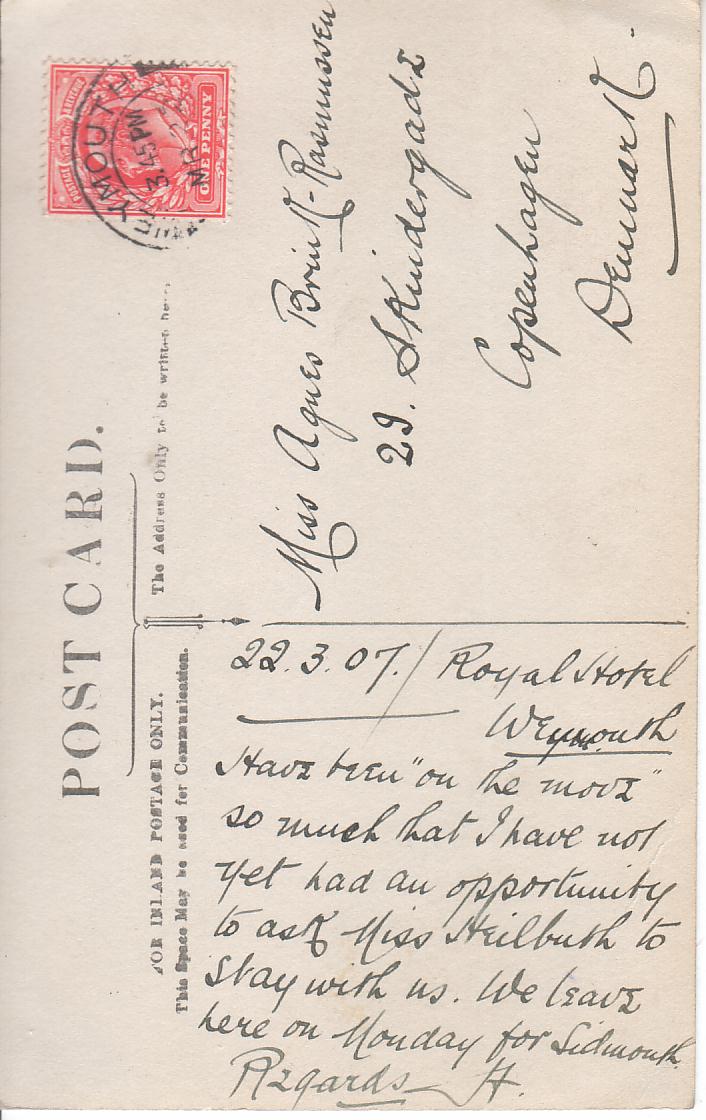 POST CARD.
FOR INLAND POSTAGE ONLY.
This Space May be used for Communication.
The Address Only to be written here.
POSTAGE REVENUE
ONE PENNY
WEYMOUTH
3.45 PM
MR
Miss Agnes Brink-Rasmussen
29. Skindergade
Copenhagen
Denmark.
22.3.07./ Royal Hotel
Weymouth
Have been "on the move"
so much that I have not
yet had an opportunity
to ask Miss Heilbuth to
stay with us. We leave
here on Monday for Sidmouth.
Regards H.